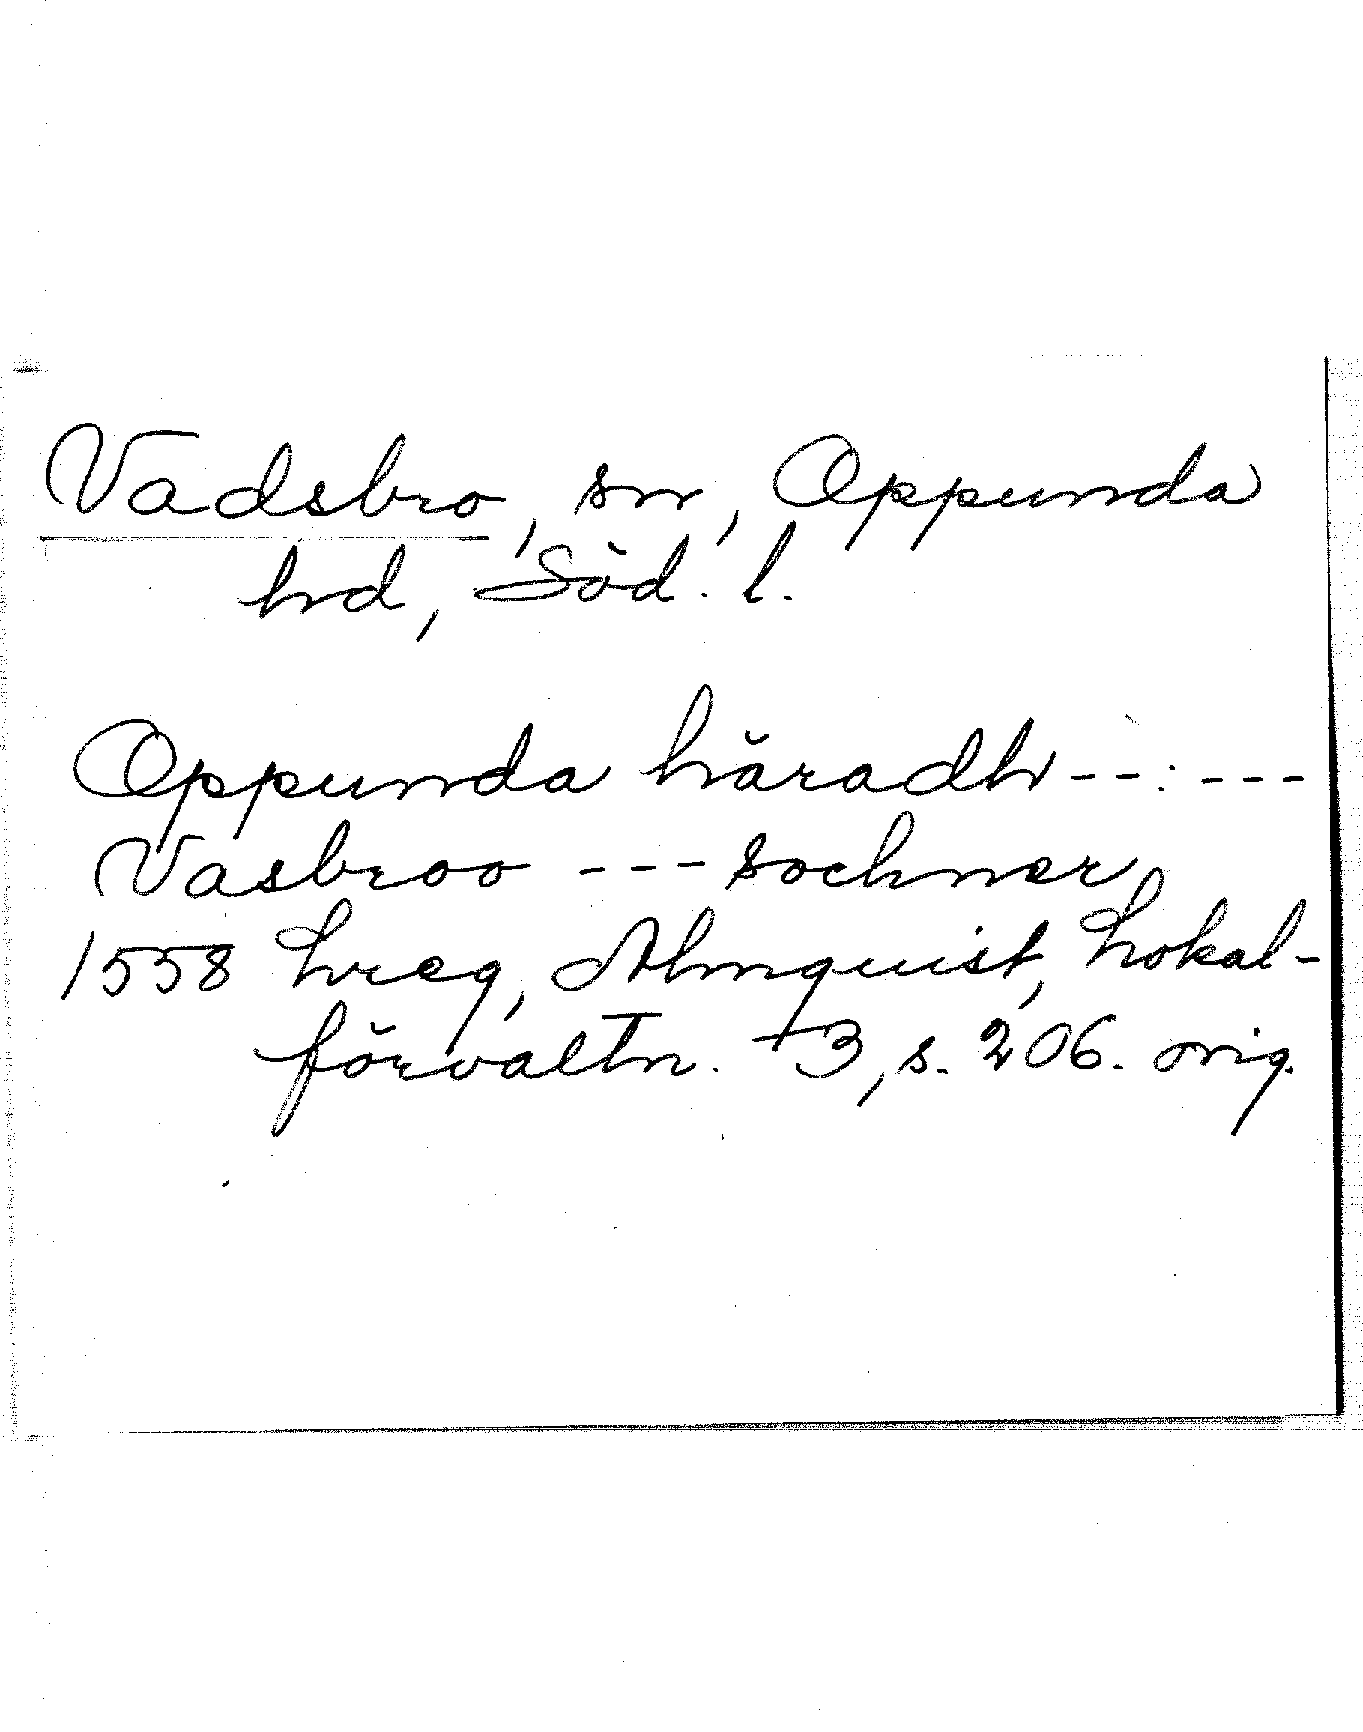 Vadsbro, sn, Oppunda
hd, Söd. l.
Oppunda häradh --:---
Vasbroo --- sochner
1558 hreg, Almquist, Lokal-
förvaltn. +3, s. 206. orig.